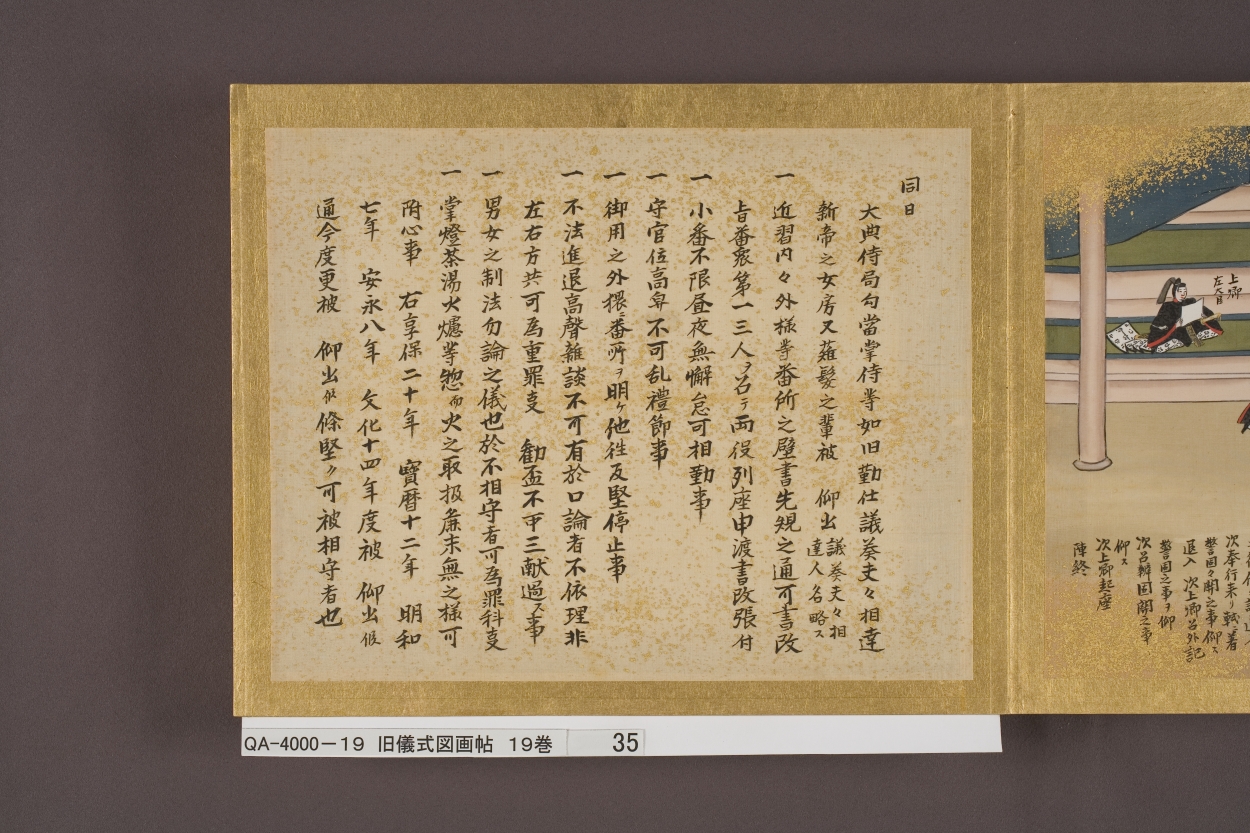 同日
大典侍局勾當掌侍等如旧勤仕議奏夫々相達
新帝之女房又薙髪之輩被　仰出議奏夫々相達人名略ス
一　近習内々外様等番所之壁書先規之通可書改
旨番衆第一三人ヲ召テ両役列座申渡書改張付
一　小番不限昼夜無懈怠可相勤事
一　守官位高卑不可乱禮節事
一　御用之外猥ニ番所ヲ明ケ他徃反堅停止事
一　不法進退高聲雑談不可有於口論者不依理非
左右方共可為重罪支　勧盃不可三献過ス事
一　男女之制法勿論之儀也於不相守者可為罪科支
一　掌燈茶湯火爐等惣而火之取扱麁末無之様可
附心事　右享保二十年　寶暦十二年　明和
七年　安永八年　文化十四年度被　仰出候
通今度更被　仰出候條堅ク可被相守者也
上卿
左大臣
次奉行来リ軾ニ着
警固々関之事仰ス
退入　次上卿召外記
警固之事ヲ仰
次召辨固関之事
仰ス
次上卿起座
陣終
QA-4000-19　旧儀式図画帖　19巻　35